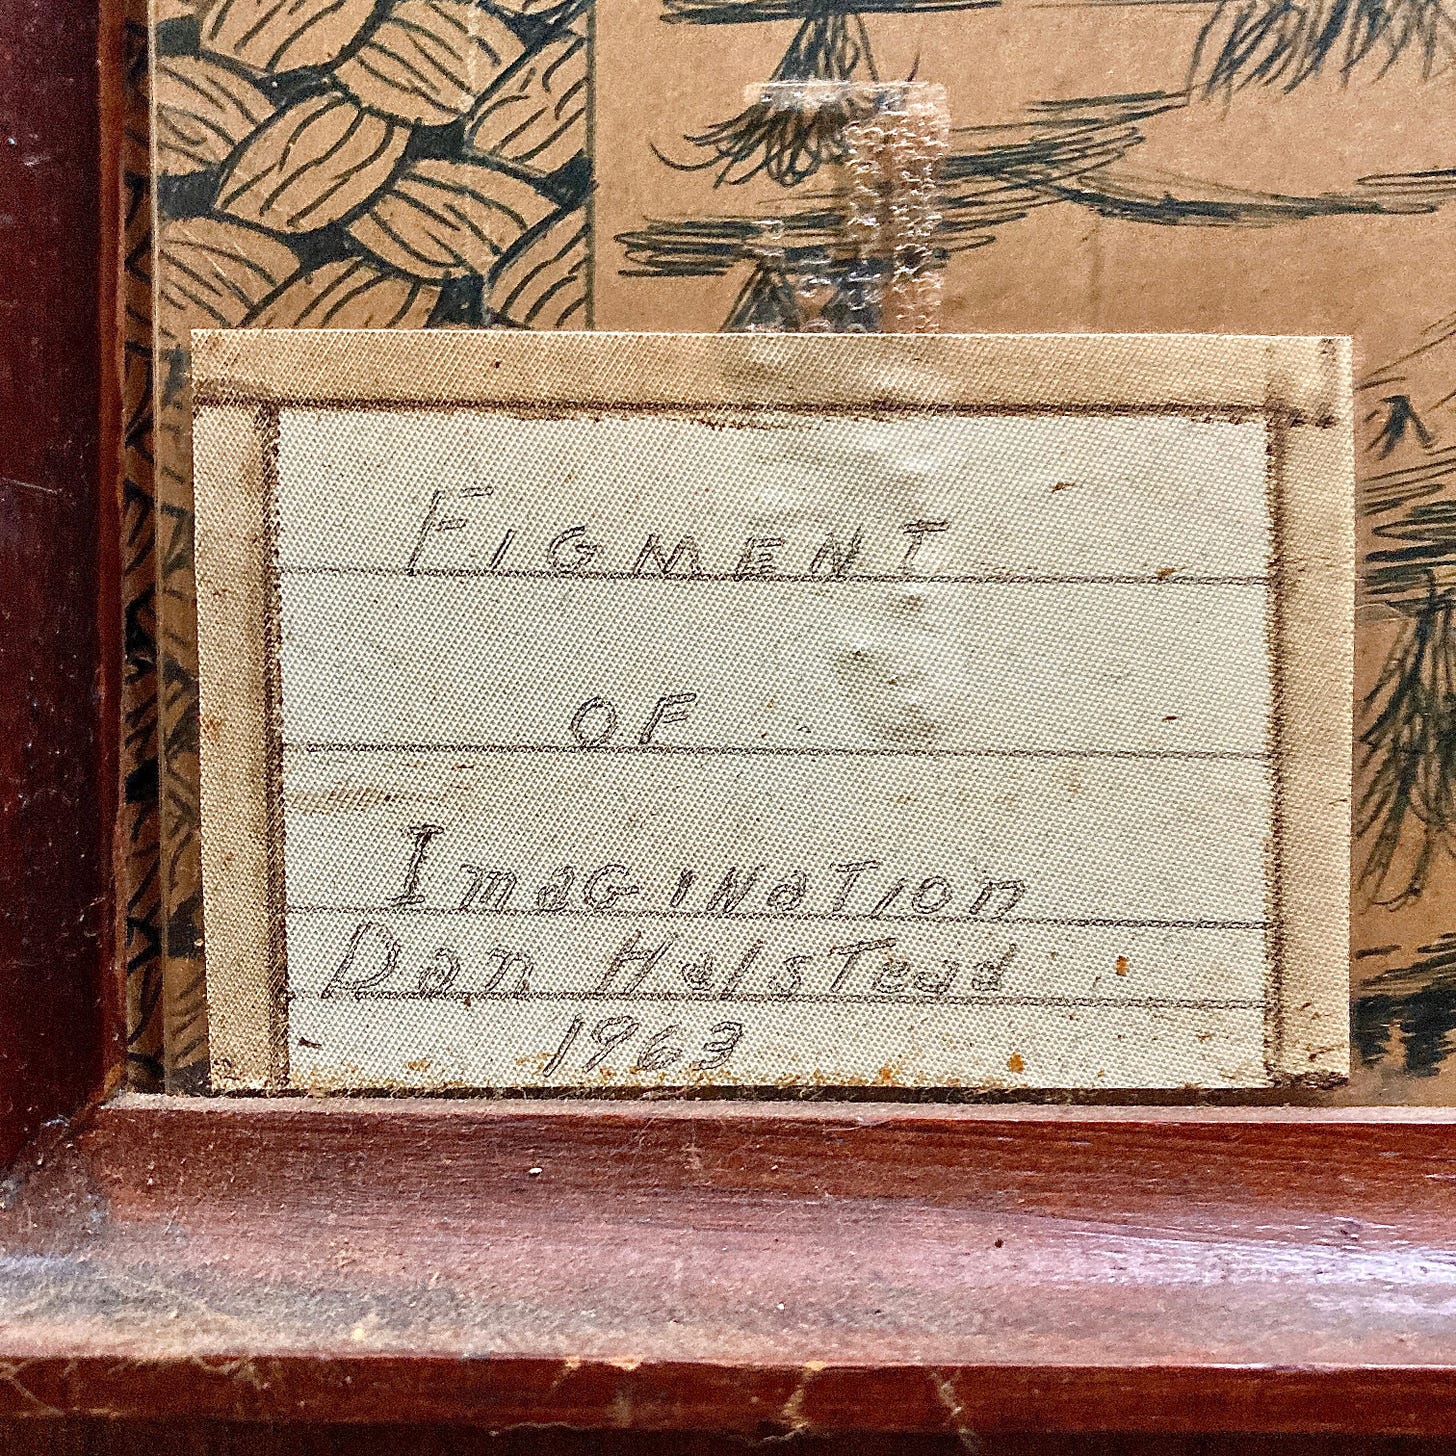 FIGMENT
OF
ImaGINaTION
Dan Halstead
1963